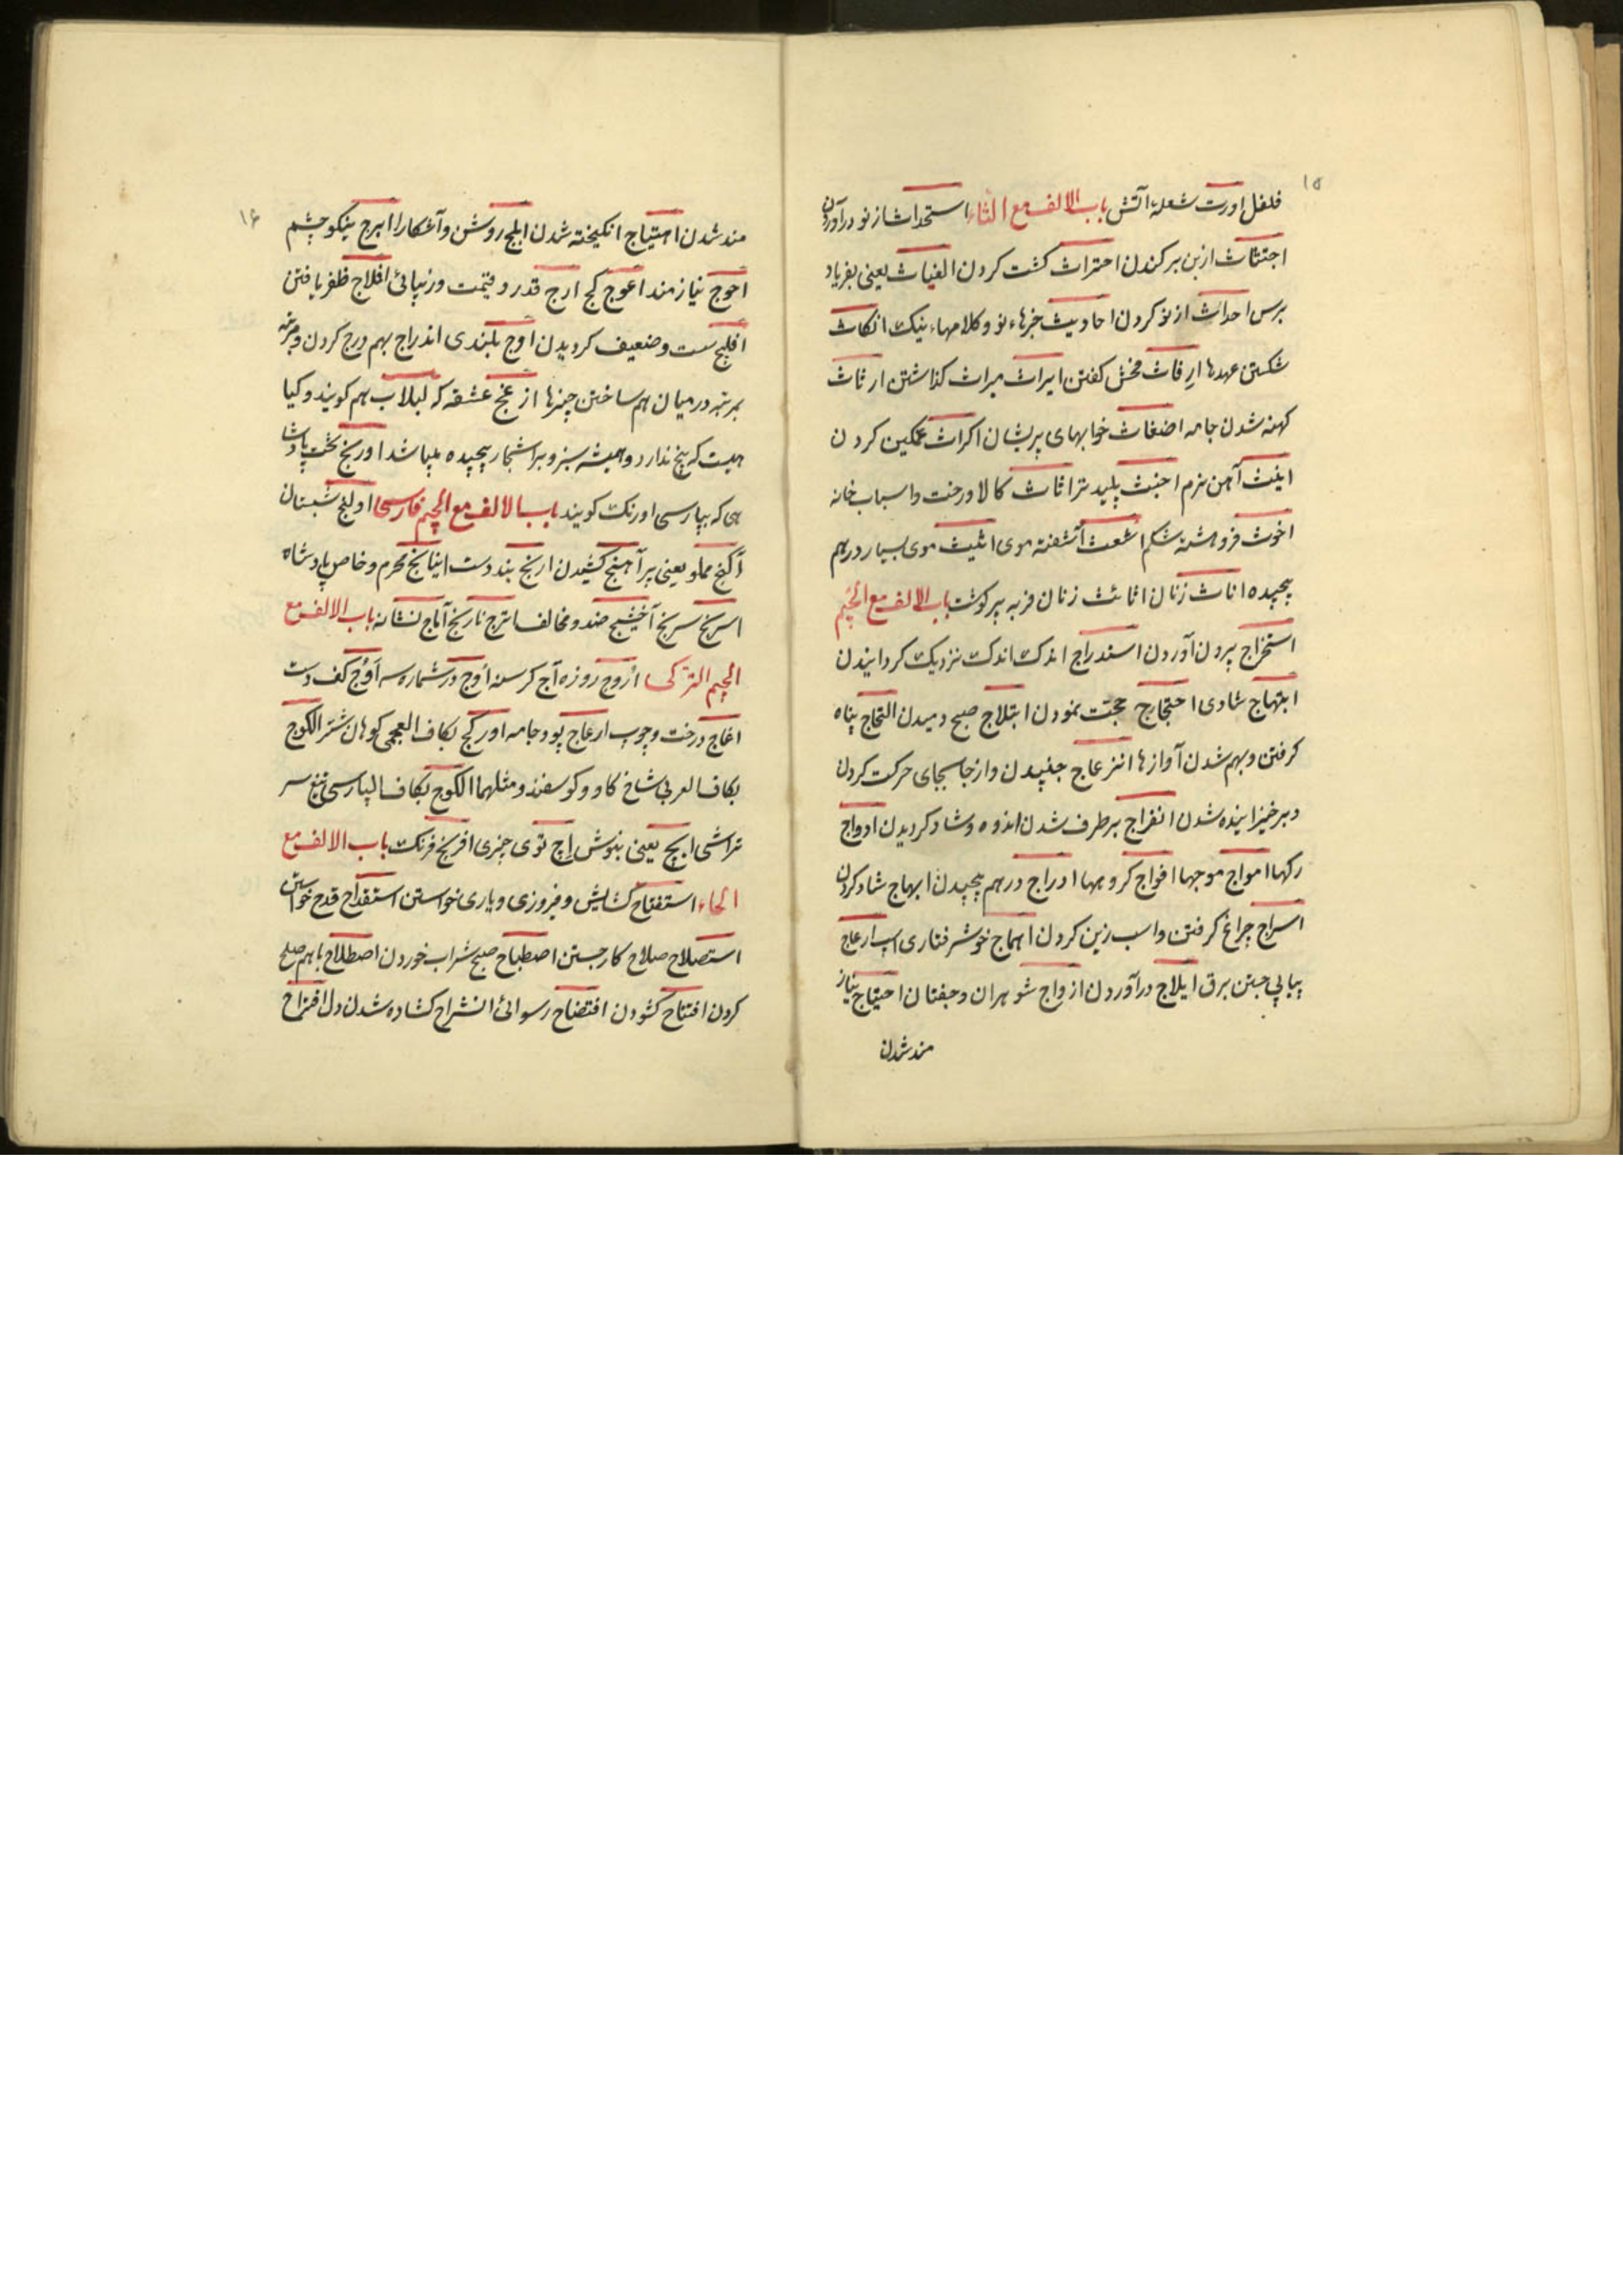 ۱۵
فلفل اورت شعلهٔ آتش باب الالف مع الثاء استحداث از نو درآوردن
اجتثاث از بن برکندن احتراث کشت کردن الغیاث یعنی بفریاد
برس احداث از نو کردن احادیث خبرهاء نو و کلامهاء نیک انکاث
شکستن عهدها ارفاث فحش کفتن ایراث میراث کذاشتن ارثاث
کهنه شدن جامه اضغاث خوابهای پریشان اکراث غمکین کردن
انیث آهن نرم اخبث پلیدتر اثاث کالا و رخت و اسباب خانه
اخوث فروهشته شکم اشعث آشفته موی اثیث موی بسیار درهم
پیچیده اناث زنان اثائث زنان فربه پرکوشت باب الالف مع الجیم
استخراج بیرون آوردن استدراج اندک اندک نزدیک کردانیدن
ابتهاج شادی احتجاج حجت نمودن ابتلاج صبح دمیدن التجاج پناه
کرفتن و بهم شدن آوازها انزعاج جنبیدن و از جا بجای حرکت کردن
و برخیزاینده شدن انفراج برطرف شدن اندوه و شاد کردیدن اوداج
رکها امواج موجها افواج کروهها ادراج درهم پیچیدن ابهاج شاد کردن
اسراج چراغ کرفتن و اسب زین کردن اهماج خوش رفتاری اسپ ارعاج
پیاپی جستن برق ایلاج درآوردن ازواج شوهران و جفتان احتیاج نیاز
مند شدن
۱۶
مند شدن اهتیاج انکیخته شدن ابلج روشن و آشکارا ابرج نیکو چشم
احوج نیازمند اعوج کج ارج قدر و قیمت و زیبائی افلاج ظفر یافتن
افلیج سست و ضعیف کردیدن اوج بلندی اندراج بهم درج کردن و مرتبه
بمرتبه در میان هم ساختن چیزها ازغنج عشقه که لبلاب هم کویند و کیا
هیست که بیخ ندارد و همیشه سبز و بر اشجار پیچیده میباشد اورنج تخت پادشا
هی که بپارسی اورنک کویند باب الالف مع الجیم فارسی اولنج شبستان
آکنج مملو یعنی پر آهنج کشیدن ارنج بند دست اینانج محرم و خاص پادشاه
اسرنج سرنج آخشیج ضد و مخالف اترج نارنج آماج نشانه باب الالف مع
الجیم الترکی اروج روزه آج کرسنه اوج در شماره سه اووج کف دست
اغاج درخت و چوب ارغاج پود جامه اورکج بکاف العجمی کوهان شتر الکوج
بکاف العربی شاخ کاو و کوسفند و مثلهما الکوج بکاف الپارسی تیغ سر
تراشی ایچ یعنی بنوش اچ توی چیزی افرنج فرنک باب الالف مع
الحاء استفتاح کشایش و فیروزی و یاری خواستن استقداح قدح خواستن
استصلاح صلاح کار جستن اصطباح صبح شراب خوردن اصطلاح باهم صلح
کردن افتتاح کشودن افتضاح رسوائی انشراح کشاده شدن دل اقتراح